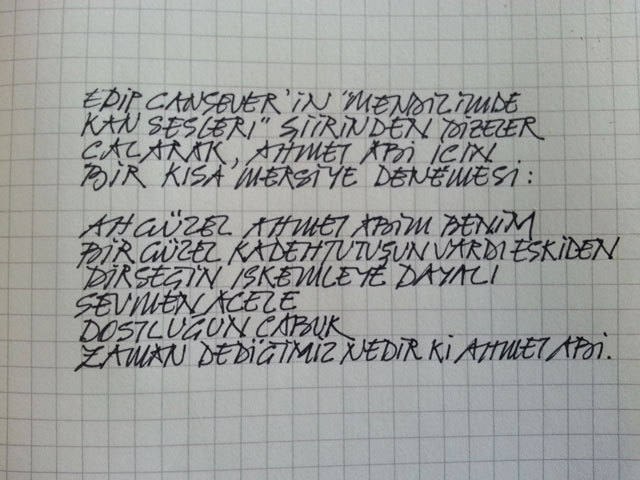 EDİP CANSEVER'İN "MENDİLİMDE
KAN SESLERİ" ŞİİRİNDEN DİZELER
ÇALARAK, AHMET ABİ İÇİN
BİR KISA MERSİYE DENEMESİ:
AH GÜZEL AHMET ABİM BENİM
BİR GÜZEL KADEH TUTUŞUN VARDI ESKİDEN
DİRSEĞİN İSKEMLEYE DAYALI
SEVMEN ACELE
DOSTLUĞUN ÇABUK
ZAMAN DEDİĞİMİZ NEDİR Kİ AHMET ABİ.